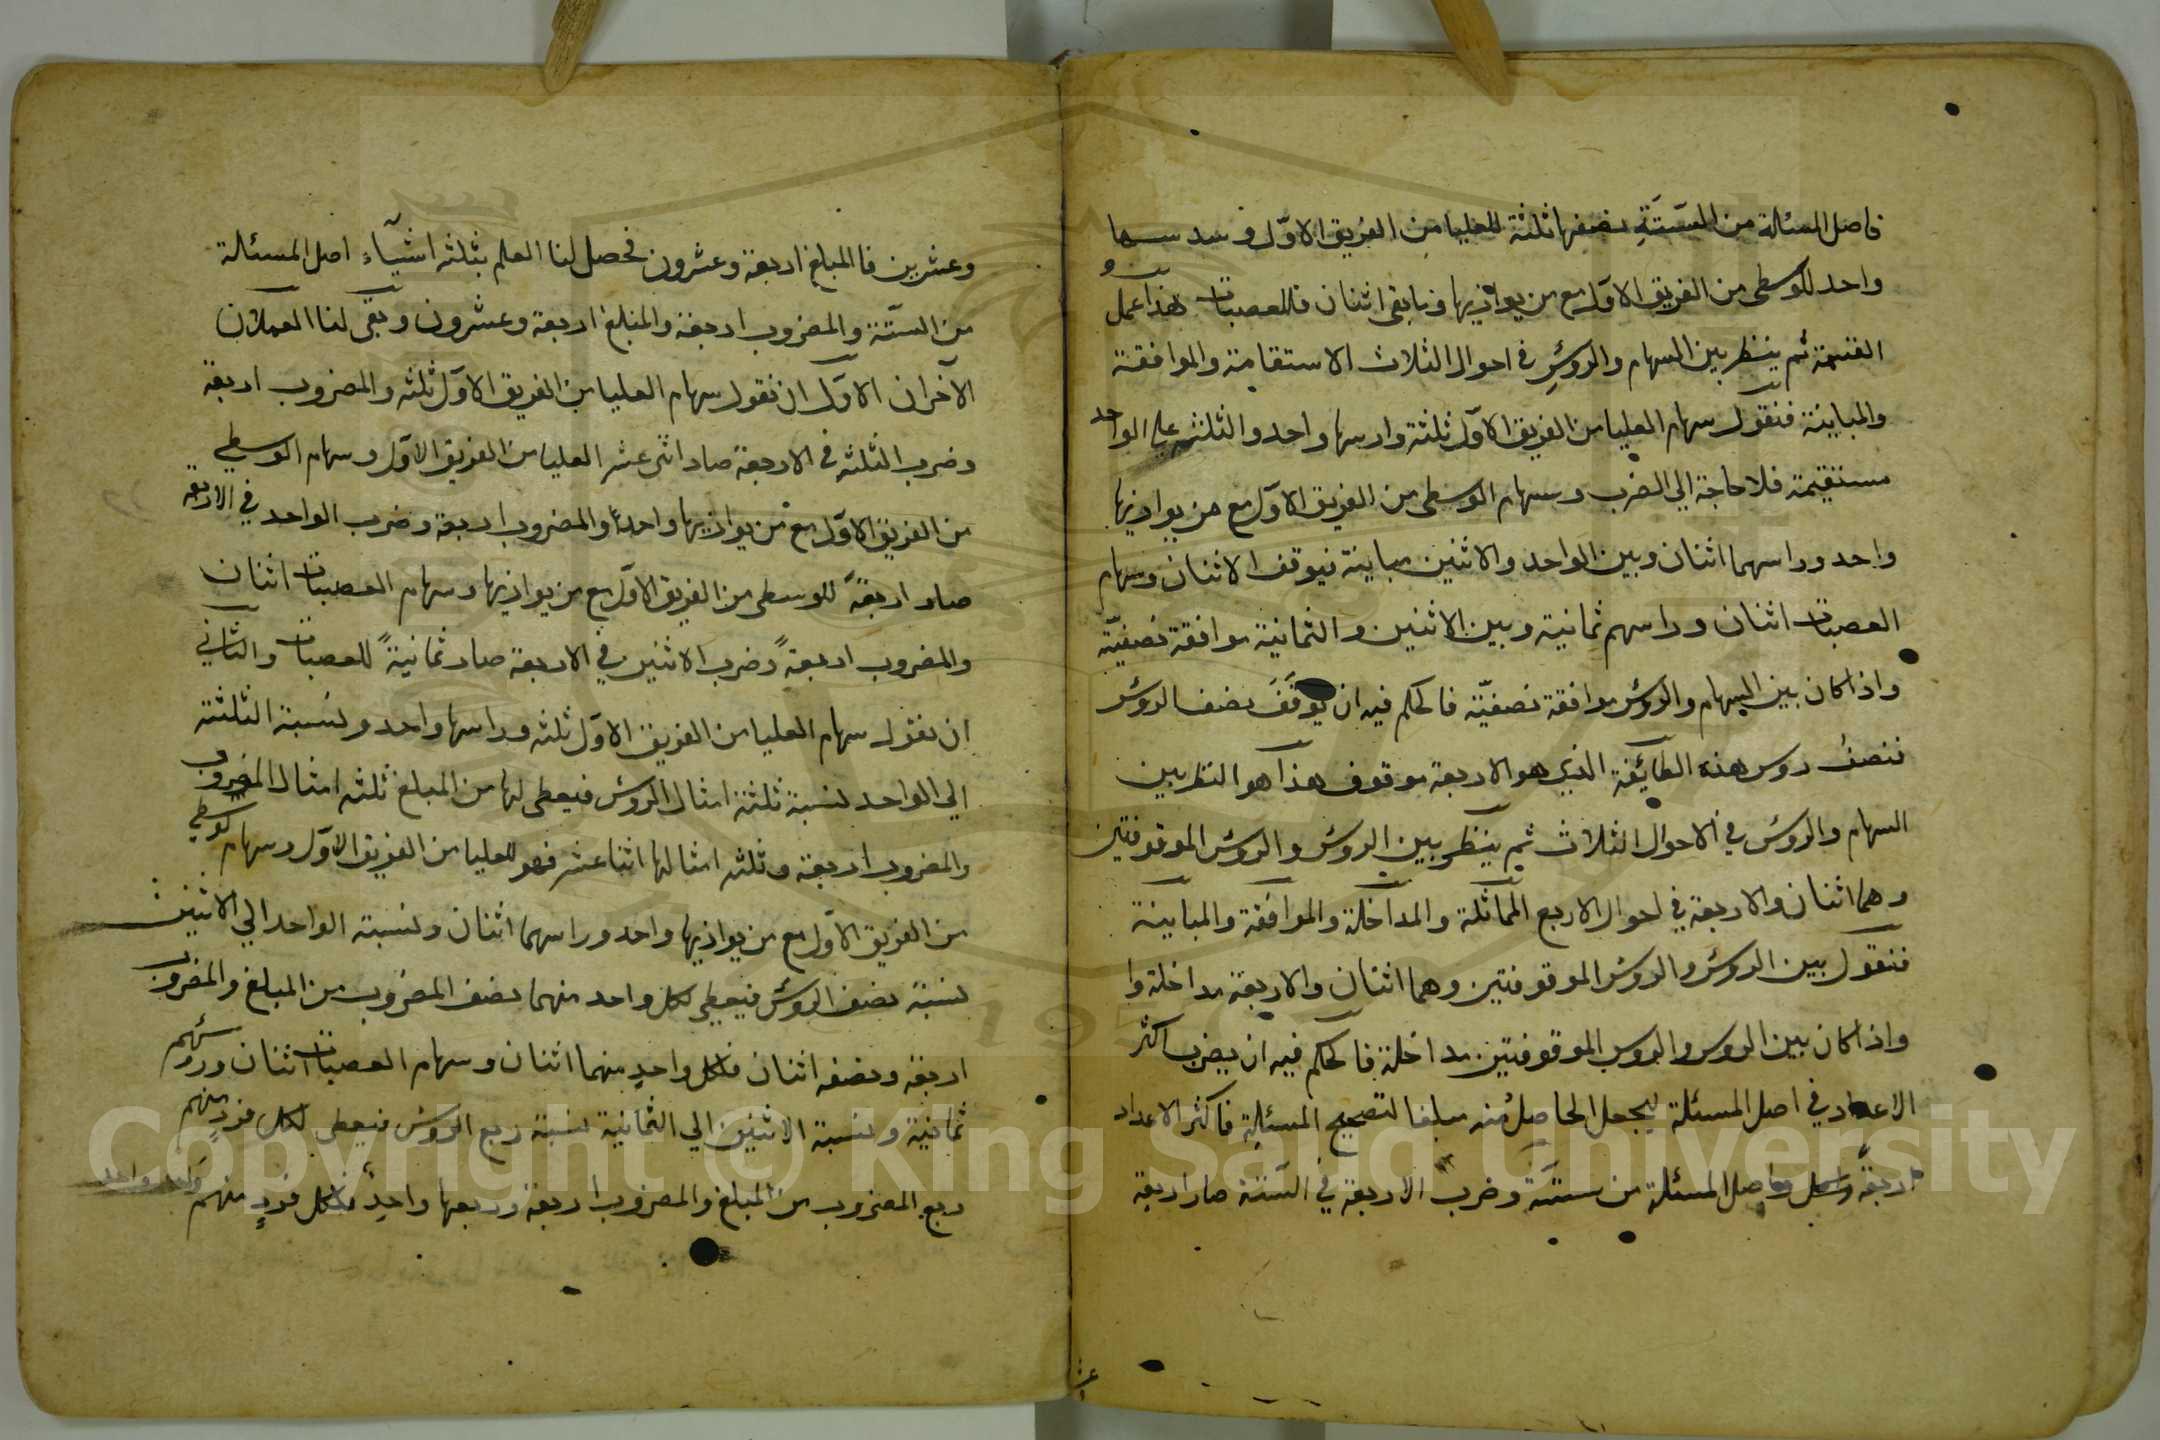 فاصل المسئلة من الستّة نصفها ثلثة للعليا من الفريق الاوّل و سدسها
واحد للوسطى من الفريق الاوّل مع من يوازيها و ما بقي اثنان فللعصبات هذا عمل
القسمة ثم ينظر بين السهام والروس في احوال الثلاث الاستقامة والموافقة
والمباينة فنقول سهام العليا من الفريق الاوّل ثلثة وراسها واحد والثلثة على الواحد
مستقيمة فلا حاجة الى الضرب و سهام الوسطى من الفريق الاوّل مع من يوازيها
واحد وراسهما اثنان وبين الواحد والاثنين مباينة فيوقف الاثنان وسهام
العصبات اثنان وراسهم ثمانية وبين الاثنين والثمانية موافقة نصفيّة
واذا كان بين السهام والروس موافقة نصفيّة فالحكم فيه ان يوقف نصف الروس
فنصف روس هذه الطائفة الذي هو الاربعة موقوف هذا هو النظر بين
السهام والروس في الاحوال الثلاث ثم ينظر بين الروس والروس الموقوفتين
وهما اثنان والاربعة في احوال الاربع المماثلة والمداخلة والموافقة والمباينة
فنقول بين الروس والروس الموقوفتين وهما اثنان والاربعة مداخلة وا
واذا كان بين الروس والروس الموقوفتين مداخلة فالحكم فيه ان يضرب اكثر
الاعداد في اصل المسئلة ليجعل الحاصل منه مبلغا لتصحيح المسئلة فاكثر الاعداد
اربعةً واصل المسئلة من ستّة وضرب الاربعة في الستّة صار اربعة
وعشرين فالمبلغ اربعة وعشرون فحصل لنا العلم بثلثه اشيآء اصل المسئلة
من الستّة والمضروب اربعة والمبلغ اربعة وعشرون وبقى لنا العملان
الآخران الاوّل ان نقول سهام العليا من الفريق الاوّل ثلثه والمضروب اربعة
وضرب الثلثه في الاربعة صار اثنى عشر العليا من الفريق الاوّل وسهام الوسطي
من الفريق الاوّل مع من يوازيها واحدٌ والمضروب اربعة وضرب الواحد في الاربعة
صار اربعةً للوسطى من الفريق الاوّل مع من يوازيها وسهام العصبات اثنان
والمضروب اربعةً وضرب الاثنين في الاربعة صار ثمانيةً للعصبات والثاني
ان نقول سهام العليا من الفريق الاوّل ثلثه وراسها واحد ونسبة الثلثة
الى الواحد نسبة ثلثة امثال الروس فيعطى لها من المبلغ ثلثه امثال المضروب
والمضروب اربعة وثلثه امثالها اثنا عشر فهو للعليا من الفريق الاوّل وسهام الوسطي
من الفريق الاوّل مع من يوازيها واحد وراسهما اثنان ونسبة الواحد الى الاثنين
نسبة نصف الروس فيعطى لكل واحد منهما نصف المضروب من المبلغ والمضروب
اربعة ونصفه اثنان فلكل واحدٍ منهما اثنان وسهام العصبات اثنان وروسهم
ثمانية ونسبة الاثنين الي الثمانية نسبة ربع الروس فيعطى لكل فردٍ منهم
ربع المضروب من المبلغ والمضروب اربعة وربعها واحدٌ فلكل فردٍ منهم واحد واحد
Copyright © King Saud University